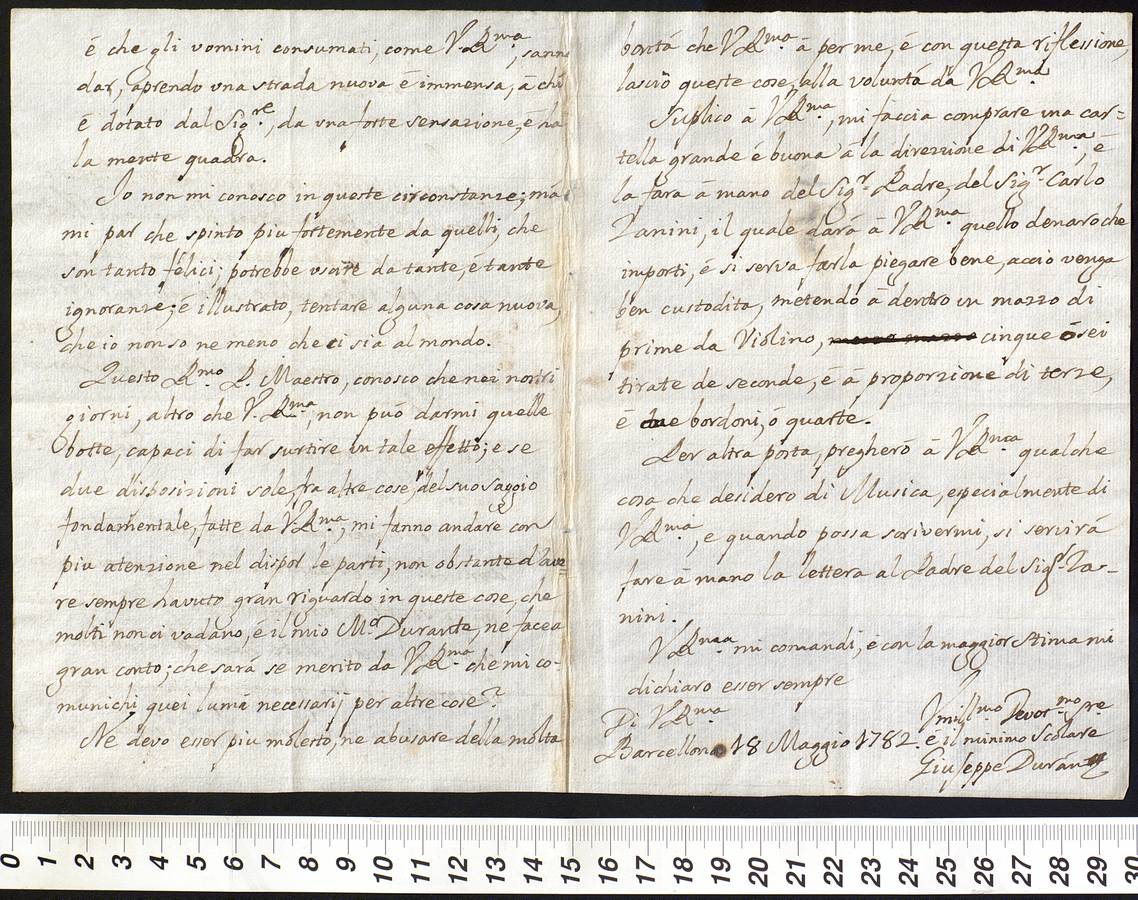 é che gli vomini consumati, come V.Rma, sanno
dar, aprendo vna strada nuova é immensa, á chi
é dotato dal Sigre, da vna forte sensazione, é ha
la mente quadra.
Io non mi conosco in queste circonstanze; ma
mi par che spinto piu fortemente da quelli, che
son tanto felici; potrebbe vscire da tante, é tante
ignoranze; é illustrato, tentare alguna cosa nuova,
che io non so ne meno che ci sia al mondo.
Questo Rmo P. Maestro, conosco che nei nostri
giorni, altro che V.Rma, non puó darmi quelle
botte, capaci di far surtire un tale effetto; e se
due disposizioni sole, fra altre cose, del suo saggio
fondamentale, fatte da VRma, mi fanno andare con
piu atenzione nel dispor le parti, non obstante d'ave=
re sempre havuto gran riguardo in queste cose, che
molti non ci vadano, é il mio Mo Durante, ne facea
gran conto; che sará se merito da VRma che mi co-
munichi quei lumi necessarij per altre cose?
Ne devo esser piu molesto, ne abusare della molta
bontá che VRma á per me, é con questa riflessione,
lascio queste cose, alla voluntá da VRma
Suplico á VRma, mi faccia comprare una car=
tella grande é buona á la direzione di VRma, é
la fara á mano del Sigr Padre, del Sigr Carlo
Zanini, il quale dará á VRma quello denaro che
importi, é si serva farla piegare bene, accio venga
ben custodita, metendo á dentro un mazzo di
prime da Violino, cinque ó sei
tirate de seconde, é á proporzione di terze,
é due bordoni, ó quarte.
Per altra porta, pregheró á VRma qualche
cosa che desidero di Musica, especialmente di
VRma, e quando possa scrivermi, si servirá
fare á mano la lettera al Padre del Sigr Za-
nini.
VRma mi comandi, é con la maggior stima mi
dichiaro esser sempre
Di VRma
Barcellona 18 Maggio 1782.
Vmillmo Devotmo Sre
é il minimo Scolare
Giuseppe Durán